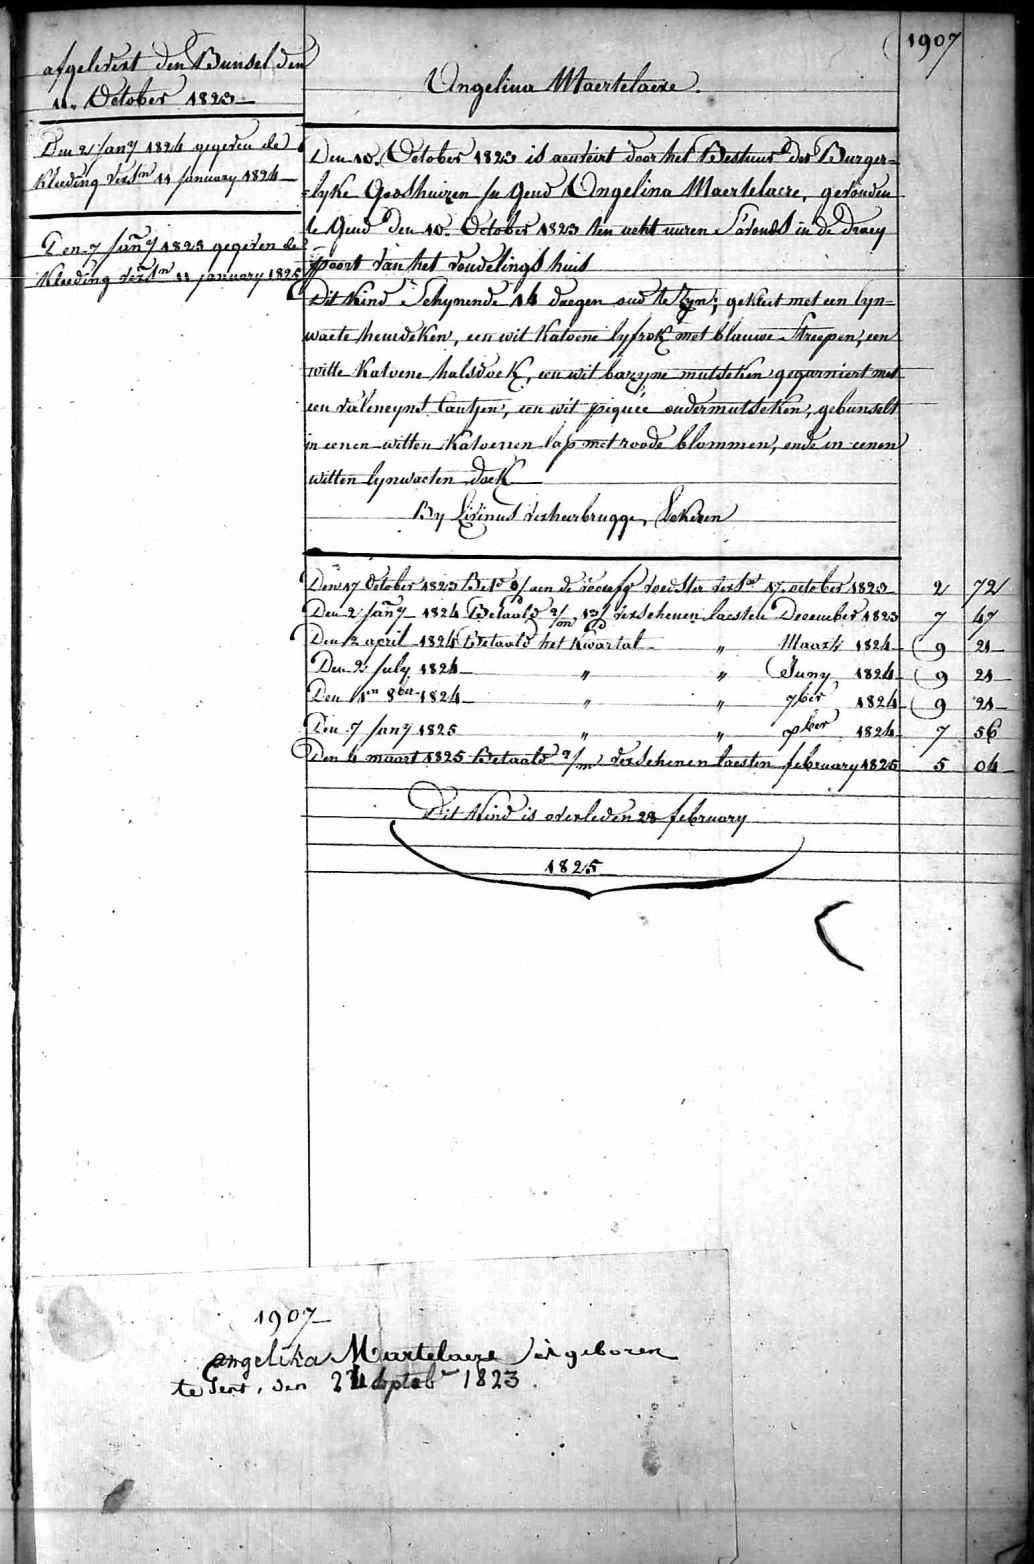 1907
afgelevert den Bunsel den
11. October 1823
Den 2 Jany 1824 gegeven de
Kleeding vers.tn 11 january 1824
Den 7 Jany 1825 gegeven de
Kleeding vers.tn 11 january 1825
Angelina Maertelaere.
Den 10. October 1823 is aenveirt door het Bestuur der Burger=
=lyke Godshuizen su Gend Angelina Maertelaere, gevonden
te Gend den 10. October 1823 ten acht uuren S'avonds in de Draey
poort van het vondelings huis
Dit Kind Schynende 14 daegen oud te Zyn; gekleet met een lyn=
waete hemdeken, een wit Katoene lyfrok met blauwe Streepen, een
witte Katoene halsdoek, een wit bazyne mutseken gegarniert met
een valeneyns Cantjen, een wit piquée ondermutseken, gebunselt
in eenen witten Katoenen lap met roode blommen, ende in eenen
witten lynwaeten doek
By Livinus Verheerbrugge, Lokeren
Den 17 October 1823 Bet.d aen de voedster vers.n 17 october 1823 2 72
Den 2 Jany 1824 Betaald verschenen laesten December 1823 7 47
Den 2 april 1824 Betaald het Kwartal " Maart 1824 9 21
Den 2 july 1824 " " Juny 1824 9 21
Den 1en 8ber 1824 " " 7ber 1824 9 21
Den 7 Jany 1825 " " xber 1824 7 56
Den 4 maart 1825 Betaald 2/m verschenen laesten february 1825 5 04
Dit Kind is overleden 28 february
1825
1907
angelika Martelaere is geboren
te Gent, den 24 Septebr 1823.